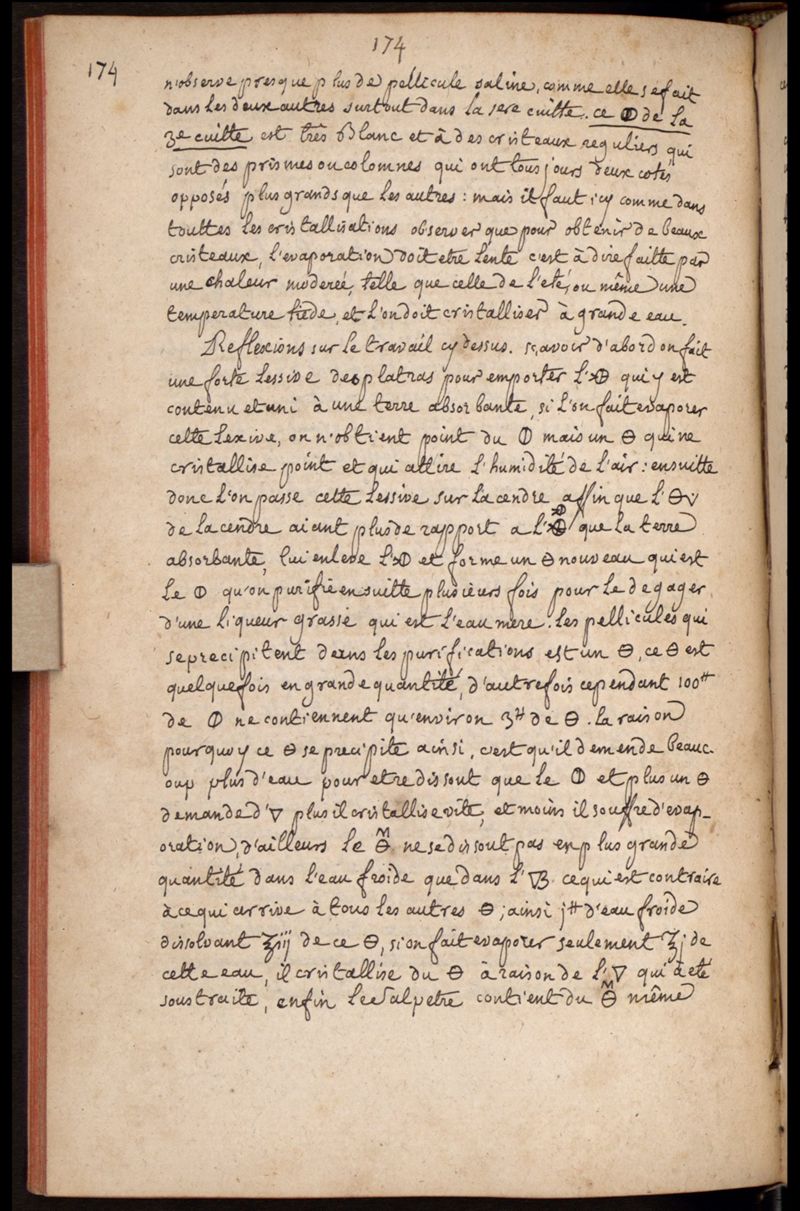 174
174
n'observe presque plus de pellicule saline, comme elle se fait
dans les deux autres surtout dans la 1ere cuitte. ce 🜕 de la
3e cuitte est très blanc et à des cristeaux reguliers qui
sont des prismes ou colomnes qui ont tous jours deux cotés
opposés plus grands que les autres : mais il faut icy comme dans
touttes les cristallisations observer que pour obtenir de beaux
cristeaux, l'evaporation doit etre lente c'est à dire faitte par
une chaleur moderée, telle que celle de l'eté, ou même d'une
temperature tiede, et l'on doit cristalliser à grande eau.
Reflexions sur le travail cy dessus. sçavoir d'abord on fait
une forte lessive de platras pour emporter l' qui y est
contenu et uni à une terre absorbante, si l'on fait evaporer
cette lexive, on n'obtient point du 🜕 mais un 🜔 qui ne
cristallise point et qui attire l'humidité de l'air : ensuitte
donc l'on passe cette lessive sur la cendre affin que l'
de la cendre aiant plus de rapport a l' que la terre
absorbante, lui enleve l' et forme un 🜔 nouveau qui est
le 🜕 qu'on purifie ensuitte plusieurs fois pour le degager
d'une liqueur grasse qui est l'eau mere. les pellicules qui
se precipitent dans les purifications est un 🜔, ce 🜔 est
quelquefois en grande quantité, d'autrefois cependant 100#
de 🜕 ne contiennent qu'environ 3# de 🜔. la raison
pourquoy ce 🜔 se precipite ainsi, c'est qu'il demende beauc-
oup plus d'eau pour etre dissout que le 🜕 et plus un 🜔
demande d'🜄 plus il cristallise vite, et moins il souffre d'evap-
oration, d'ailleurs le 🜔 M ne se dissout pas en plus grande
quantité dans l'eau froide que dans l'🜄B. ce qui est contraire
à ce qui arrive à tous les autres 🜔 ; ainsi j# d'eau froide
dissolvant ℥iij de ce 🜔, si on fait evaporer seulement ℥j de
cette eau, il cristallise du 🜔 à raison de l'🜄 qui à eté
soustraite, enfin le salpetre contient du 🜔 M même